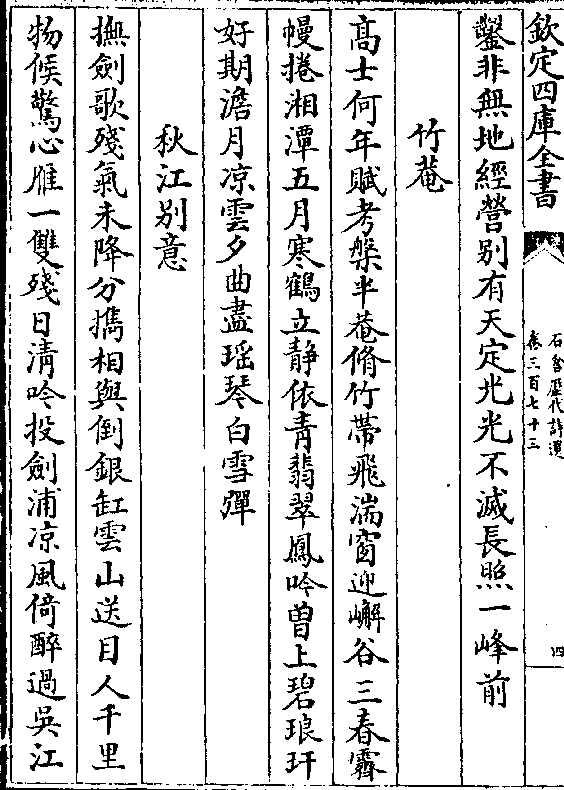 欽定四庫全書
石倉歷代詩選
卷三百七十三
四
鑿非無地經營别有天定光光不滅長照一峰前
竹菴
高士何年賦考槃半菴脩竹帶飛湍窗迎嶰谷三春霽
幔捲湘潭五月寒鶴立静依青翡翠鳳吟曽上碧琅玕
好期澹月凉雲夕曲盡瑶琴白雪彈
秋江别意
撫劍歌殘氣未降分擕相與倒銀缸雲山送目人千里
物候驚心雁一雙殘日清吟投劍浦凉風倚醉過吳江